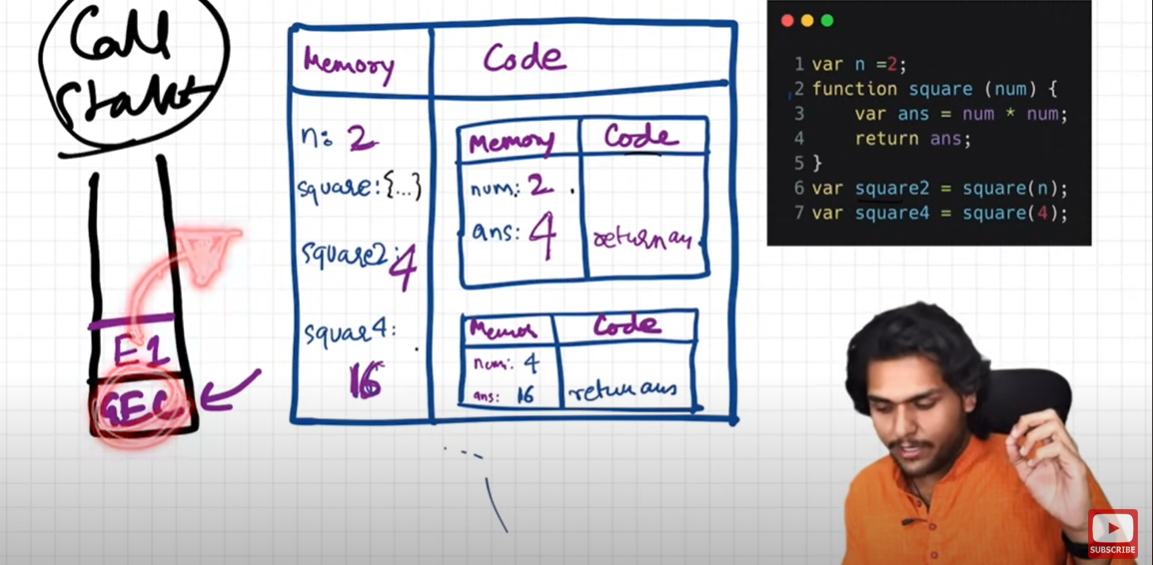 Call
Stack
E1
GEC
Memory
Code
n: 2
square:{...}
square2: 4
squar4:
16
Memory
Code
num: 2
ans: 4
return an
Memor
Code
num: 4
ans: 16
return ans
1 var n =2;
2 function square (num) {
3 var ans = num * num;
4 return ans;
5 }
6 var square2 = square(n);
7 var square4 = square(4);
SUBSCRIBE